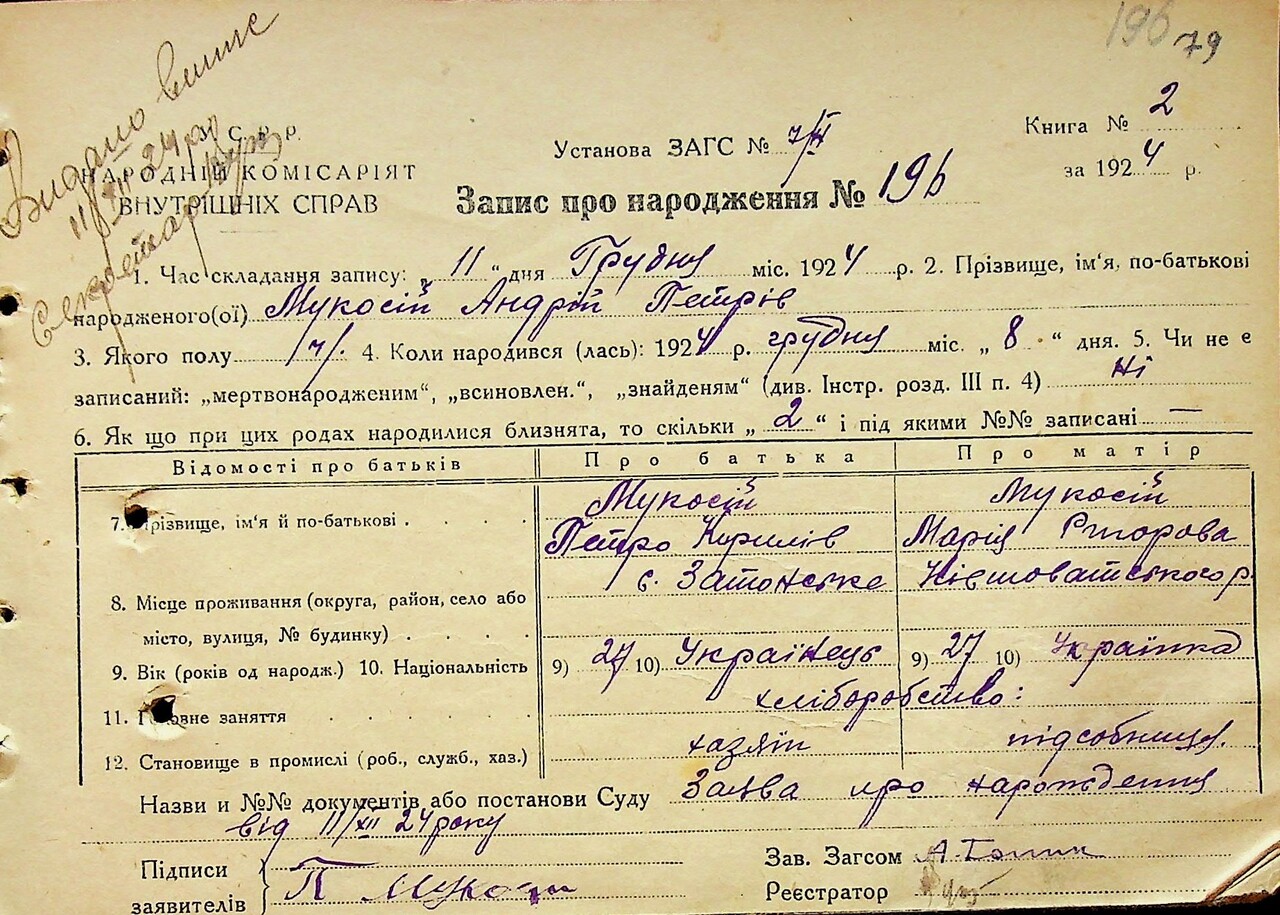 196 79
Видано випис
11/XII 24 р.
Секретар
У. С. Р. Р.
НАРОДНІЙ КОМІСАРІЯТ
ВНУТРІШНІХ СПРАВ
Установа ЗАГС №
Книга № 2
за 1924 р.
Запис про народження № 196
1. Час складання запису: „ 11 “ дня Грудня міс. 1924 р. 2. Прізвище, ім'я, по-батькові
народженого(ої) Мукосій Андрій Петрів
3. Якого полу ч. 4. Коли народився (лась): 1924 р. грудня міс. „ 8 “ дня. 5. Чи не є
записаний: „мертвонародженим“, „всиновлен.“, „знайденям“ (див. Інстр. розд. III п. 4) Ні
6. Як що при цих родах народилися близнята, то скільки „ 2 “ і під якими №№ записані —
Відомості про батьків Про батька Про матір
7. Прізвище, ім'я й по-батькові . . . . Мукосій Мукосій
Петро Кирилів Марія Григорова
с. Затонське
8. Місце проживання (округа, район, село або
місто, вулиця, № будинку) . . . .
9. Вік (років од народж.) 10. Національність 9) 27 10) Українець 9) 27 10) Українка
11. Головне заняття . . . . . . хліборобство:
12. Становище в промислі (роб., служб., хаз.) хазяїн підсобниця.
Назви и №№ документів або постанови Суду Заява про народження
від 11/XII 24 року
Підписи
заявителів П Мукосій
Зав. Загсом
Реєстратор